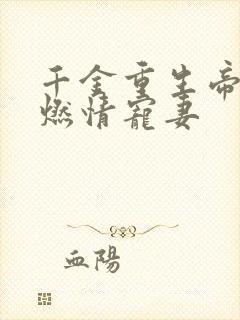 千金重生帝
燃情寵妻
血陽